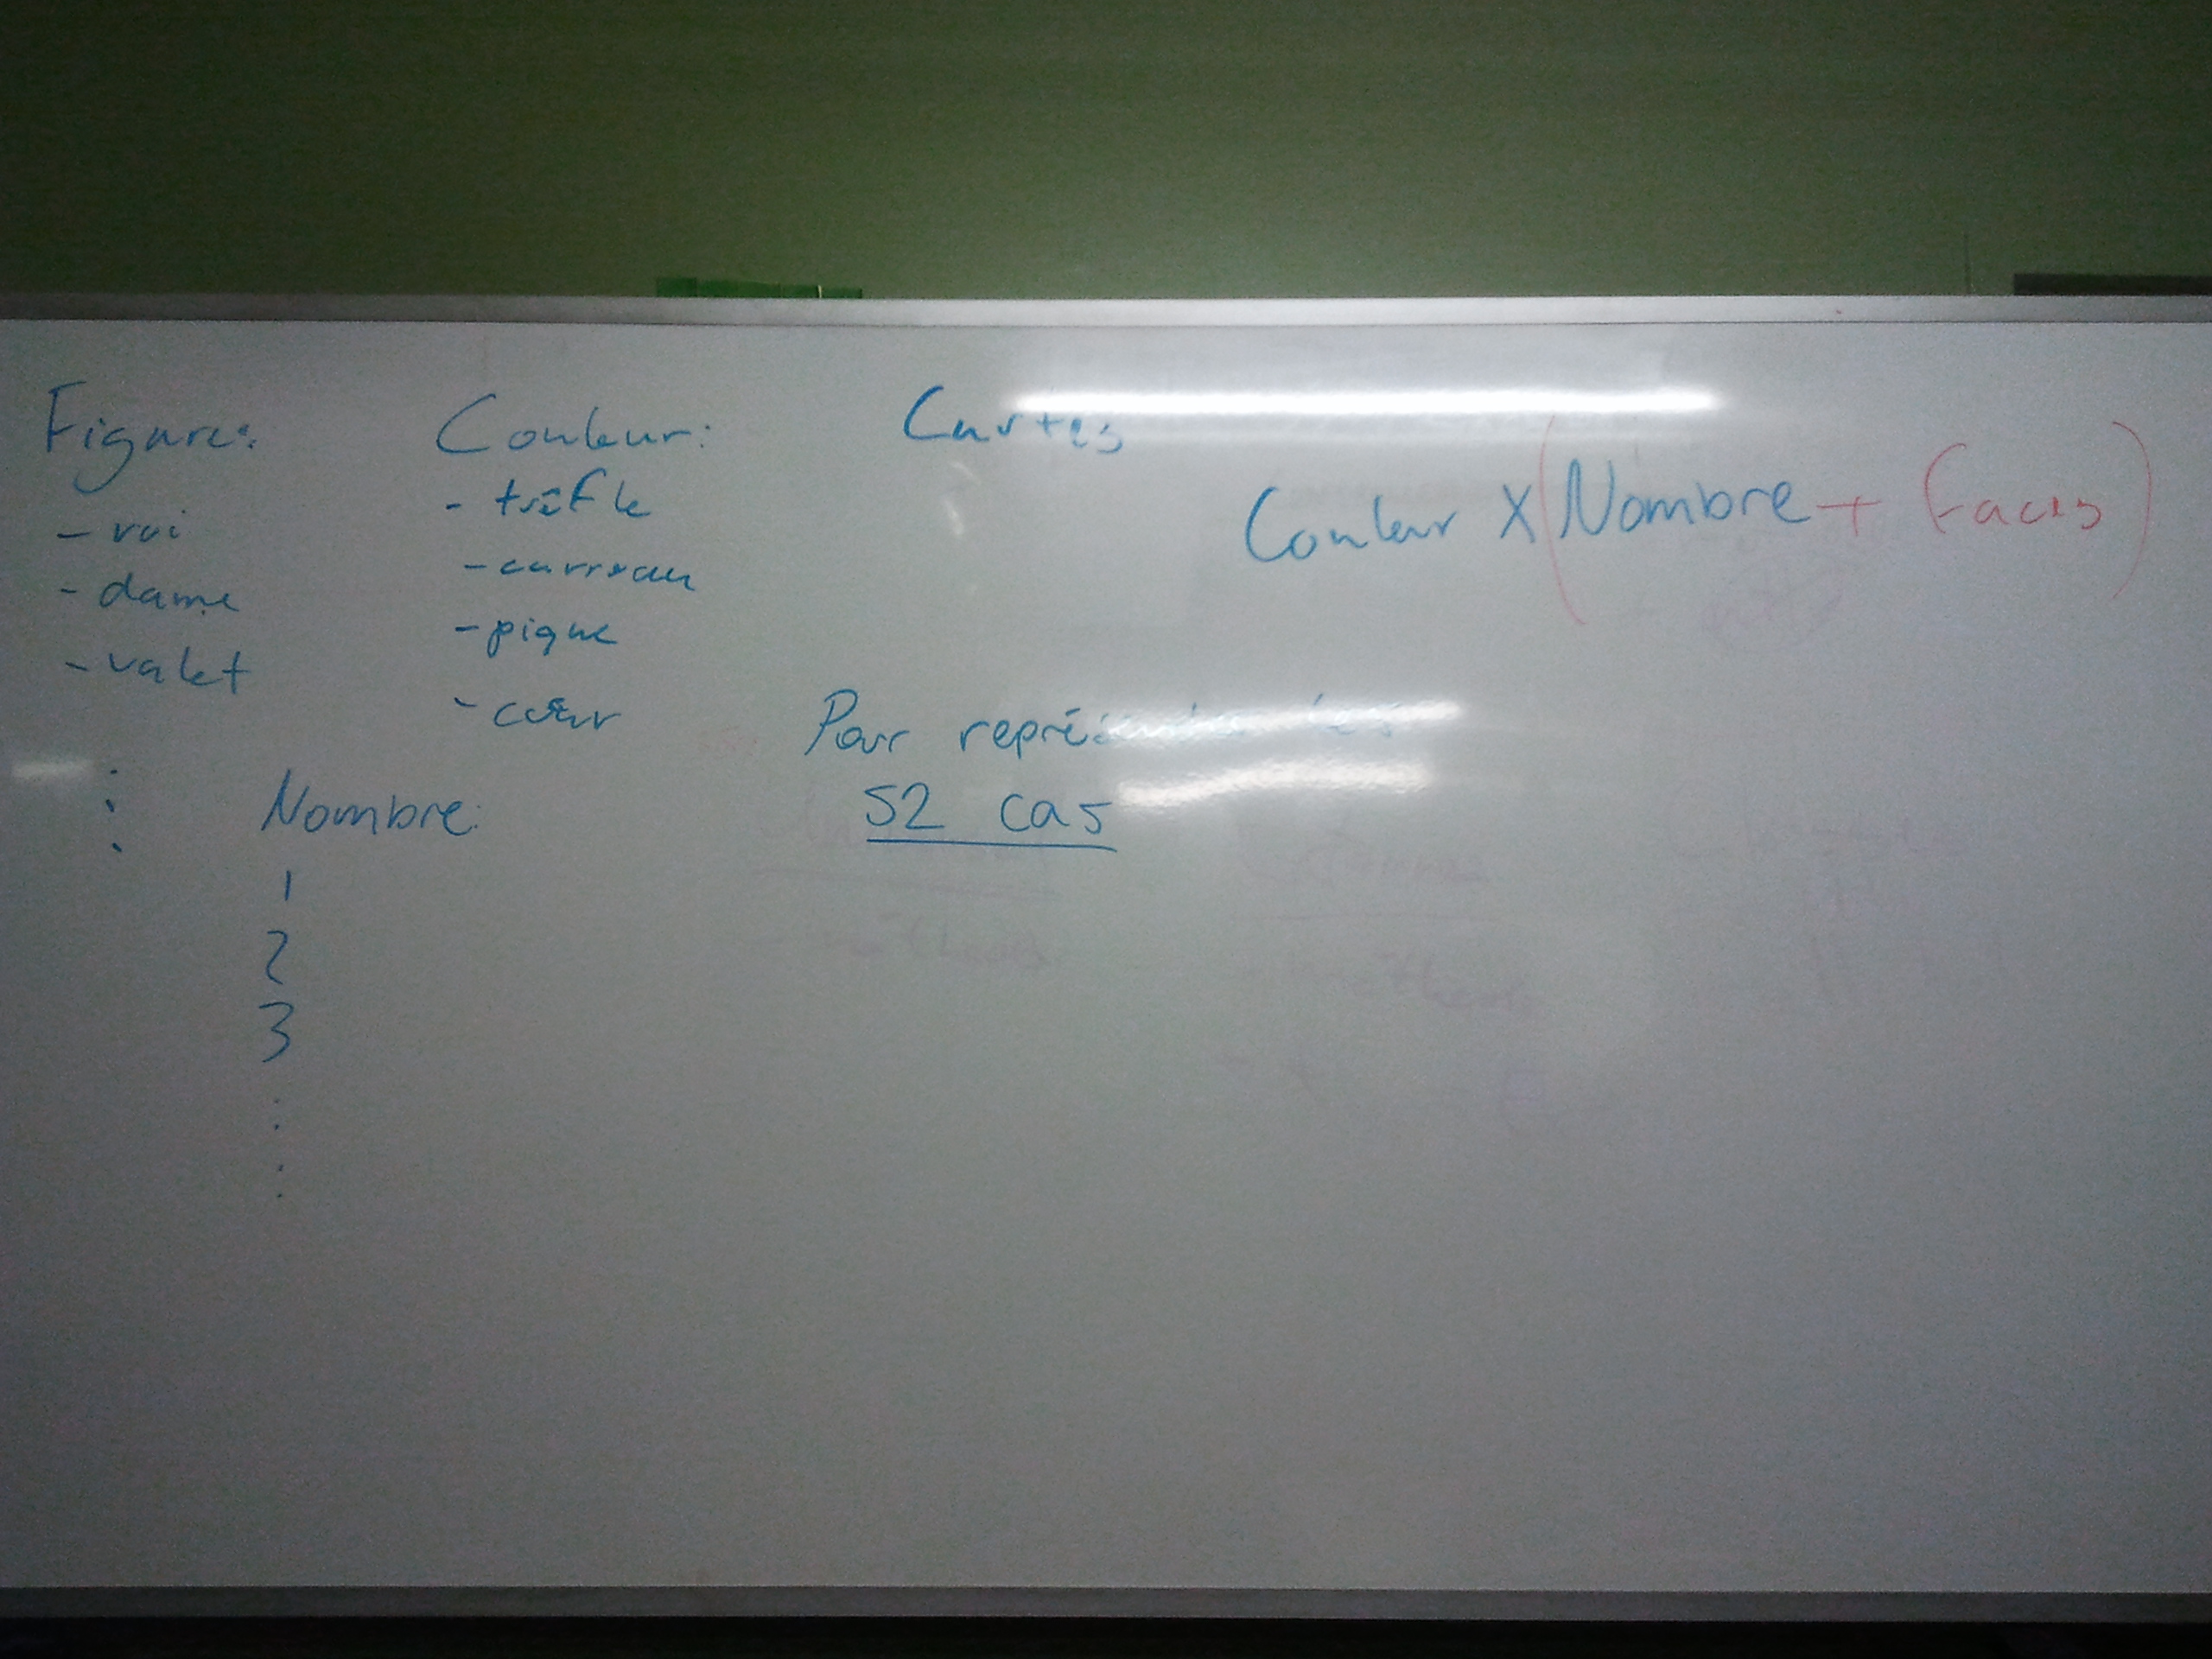 Figure:
- roi
- dame
- valet
Couleur:
- trèfle
- carreau
- pique
- cœur
Cartes
Couleur X (Nombre + Faces)
Pour représenter les
52 cas
Nombre:
1
2
3